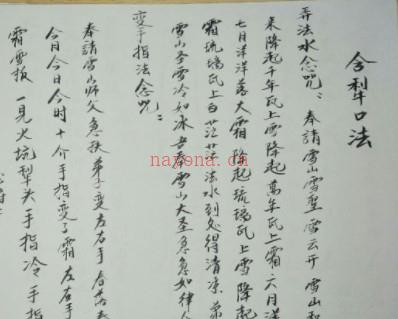 含犁口法
弄法水念咒： 奉請雪山雪聖 雪云开 雪山和
来降起千年瓦上雪 降起萬年瓦上霜 六月洋
七月洋洋落大霜 降起琉璃瓦上雪 降起
霜 琉璃瓦上白茫茫 法水到处得清凉 弟
雪山圣雪冷如冰 吾奉雪山大圣急急如律
变手指法念咒：
奉請雪山師父急扶弟子 变左右手
今月今日今时 十介手指变了霜 左右手
霜雪振 一見火坑犁头手指冷 手指
nayona.cn